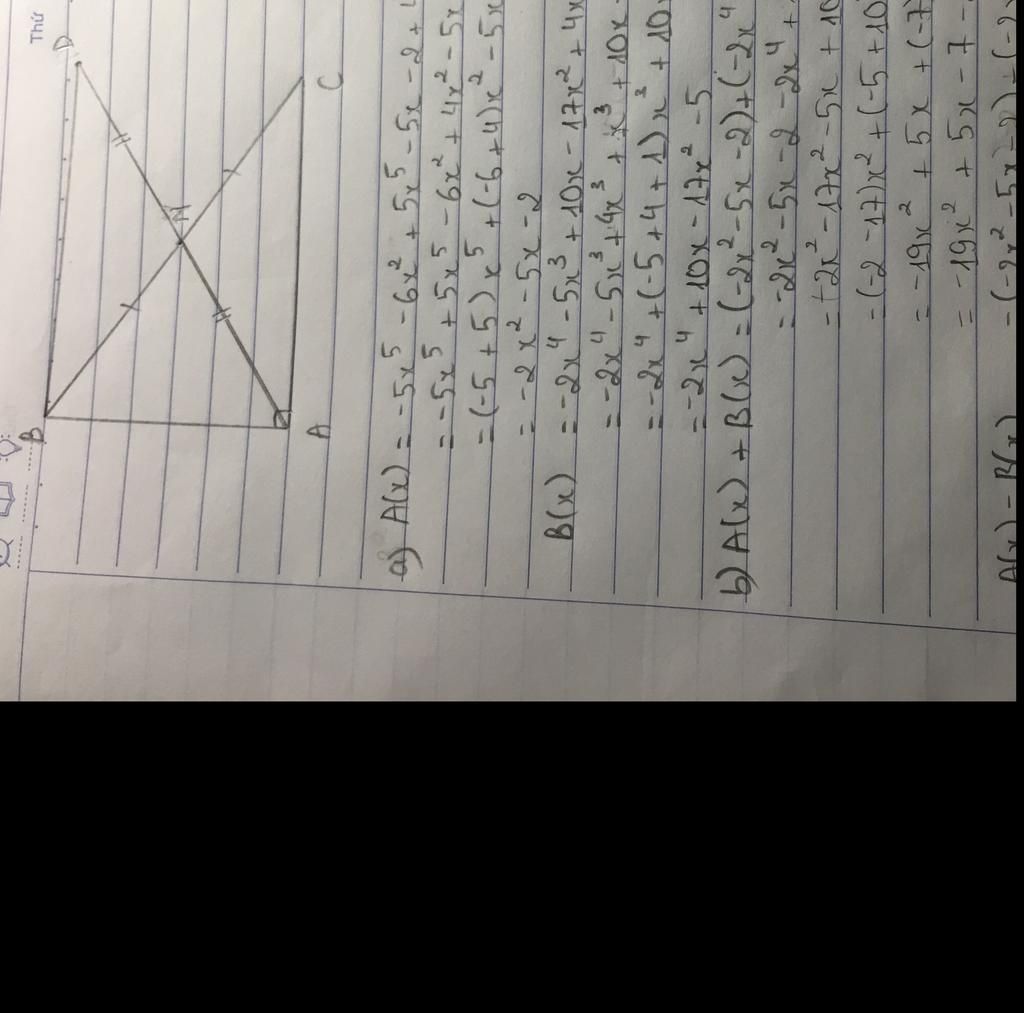 Thứ
B
D
M
A
C
a) A(x) = -5x⁵ - 6x² + 5x⁵ - 5x - 2 +
= -5x⁵ + 5x⁵ - 6x² + 4x² - 5x
= (-5 + 5)x⁵ + (-6 + 4)x² - 5x
= -2x² - 5x - 2
B(x) = -2x⁴ - 5x³ + 10x - 17x² + 4x
= -2x⁴ - 5x³ + 4x³ + x³ + 10x
= -2x⁴ + (-5 + 4 + 1)x³ + 10x
= -2x⁴ + 10x - 17x² - 5
b) A(x) + B(x) = (-2x² - 5x - 2) + (-2x⁴
= -2x² - 5x - 2 - 2x⁴ +
= -2x² - 17x² - 5x + 10
= (-2 - 17)x² + (-5 + 10)
= -19x² + 5x + (-7)
= -19x² + 5x - 7 -
A(x) - B(x) = (-2x² - 5x - 2) - (-2x